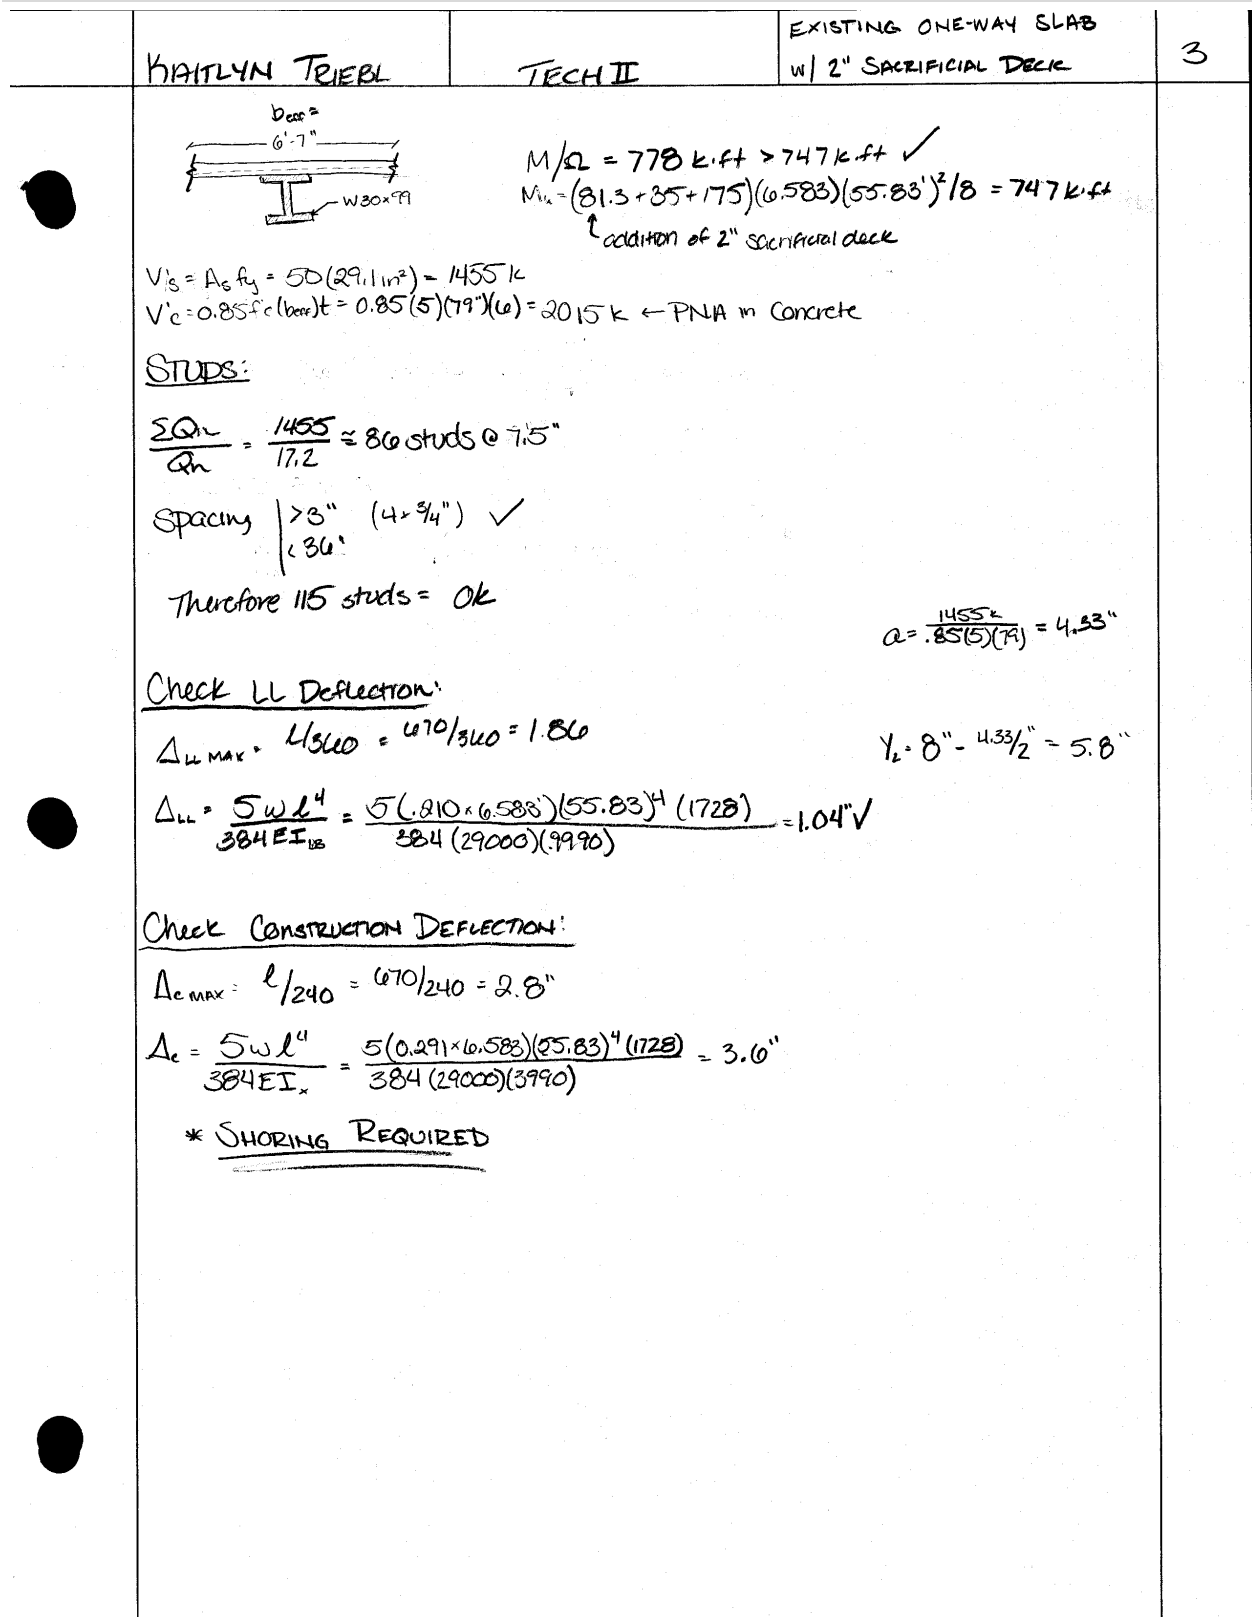 KAITLYN TRIEBL
TECH II
EXISTING ONE-WAY SLAB
W/ 2" SACRIFICIAL DECK
3
beff =
6'-7"
W30x99
M/Ω = 778 k·ft > 747 k·ft ✓
Mu = (81.3 + 35 + 175)(6.583)(55.83')²/8 = 747 k·ft
addition of 2" sacrificial deck
V's = As fy = 50(29.1 in²) = 1455 k
V'c = 0.85f'c(beff)t = 0.85(5)(79")(6) = 2015 k ← PNA in Concrete
STUDS:
ΣQn/Qn = 1455/17.2 ≅ 86 studs @ 7.5"
Spacing >3" (4 × 3/4") ✓
< 36"
Therefore 115 studs = Ok
a = 1455k/.85(5)(79) = 4.33"
Check LL Deflection:
ΔLL MAX = l/360 = 670/360 = 1.86
Y2 = 8" - 4.33/2" = 5.8"
ΔLL = 5wl⁴/384EILB = 5(.210 × 6.583')(55.83)⁴(1728)/384(29000)(9990) = 1.04" ✓
Check CONSTRUCTION DEFLECTION:
Δc MAX = l/240 = 670/240 = 2.8"
Δc = 5wl⁴/384EIx = 5(0.291×6.583)(55.83)⁴(1728)/384(29000)(3990) = 3.6"
* SHORING REQUIRED